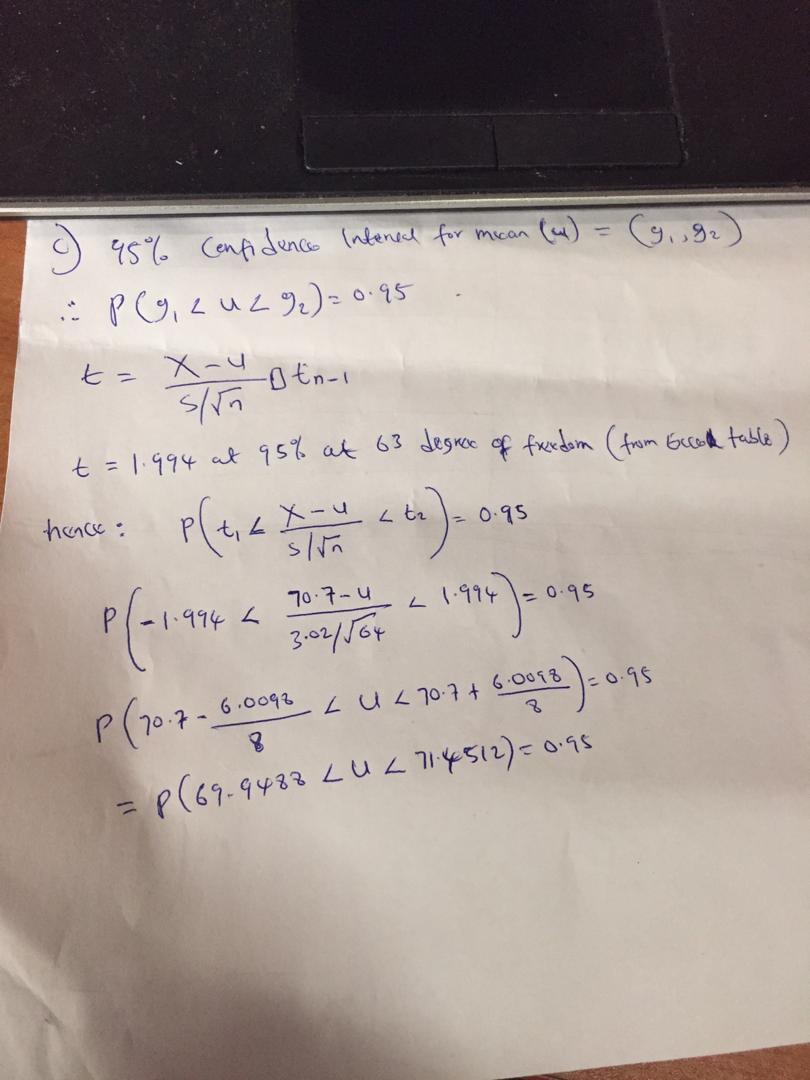 c) 95% Confidence Interval for mean (u) = (g₁, g₂)
∴ P(g₁ < u < g₂) = 0.95
t = X-u / s/√n ▯ tn-1
t = 1.994 at 95% at 63 degree of freedom (from Excel table)
hence: P(t₁ < X-u / s/√n < t₂) = 0.95
P(-1.994 < 70.7-u / 3.02/√64 < 1.994) = 0.95
P(70.7 - 6.0098/8 < u < 70.7 + 6.0098/8) = 0.95
= P(69.9488 < u < 71.4512) = 0.95